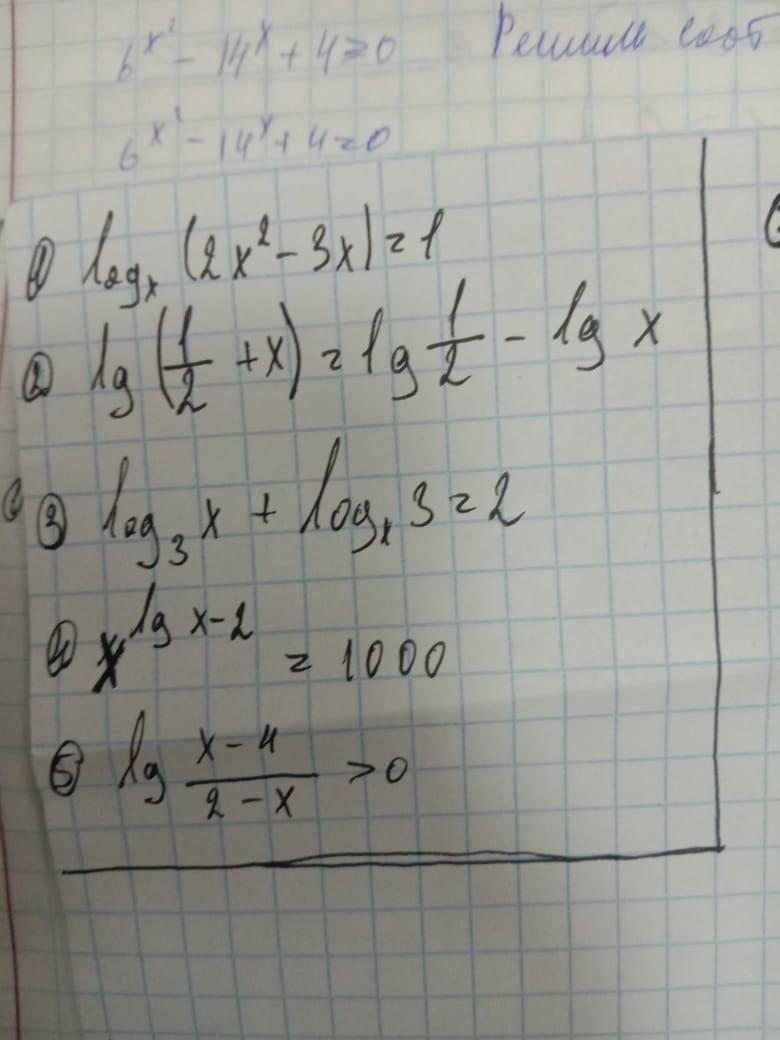 6^x² - 14^x + 4 ≥ 0 Решим
6^x² - 14^x + 4 = 0
① log_x (2x² - 3x) = 1
② lg (1/2 + x) = lg 1/2 - lg x
③ log_3 x + log_x 3 = 2
④ x^(lg x-2) = 1000
⑤ lg (x - 4)/(2 - x) > 0